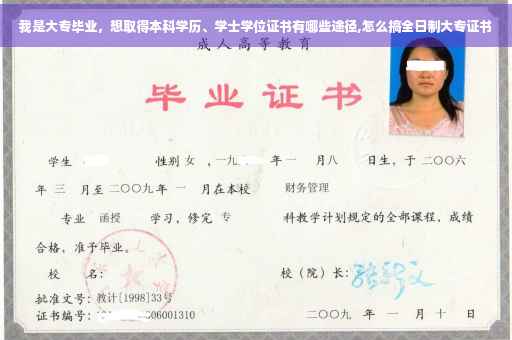 我是大专毕业，想取得本科学历、学士学位证书有哪些途径,怎么搞全日制大专证书
成人高等教育
毕业证书
学生 性别 女 ，一九 年一 月八 日生，于二〇〇六
年 三 月至二〇〇九年 一 月在本校 财务管理
专业 函授 学习，修完 专 科教学计划规定的全部课程，成绩
合格，准予毕业。
校 名： 校（院）长：
批准文号：教计[1998]33号
证书编号： 06001310 二〇〇九 年 一 月 十 日